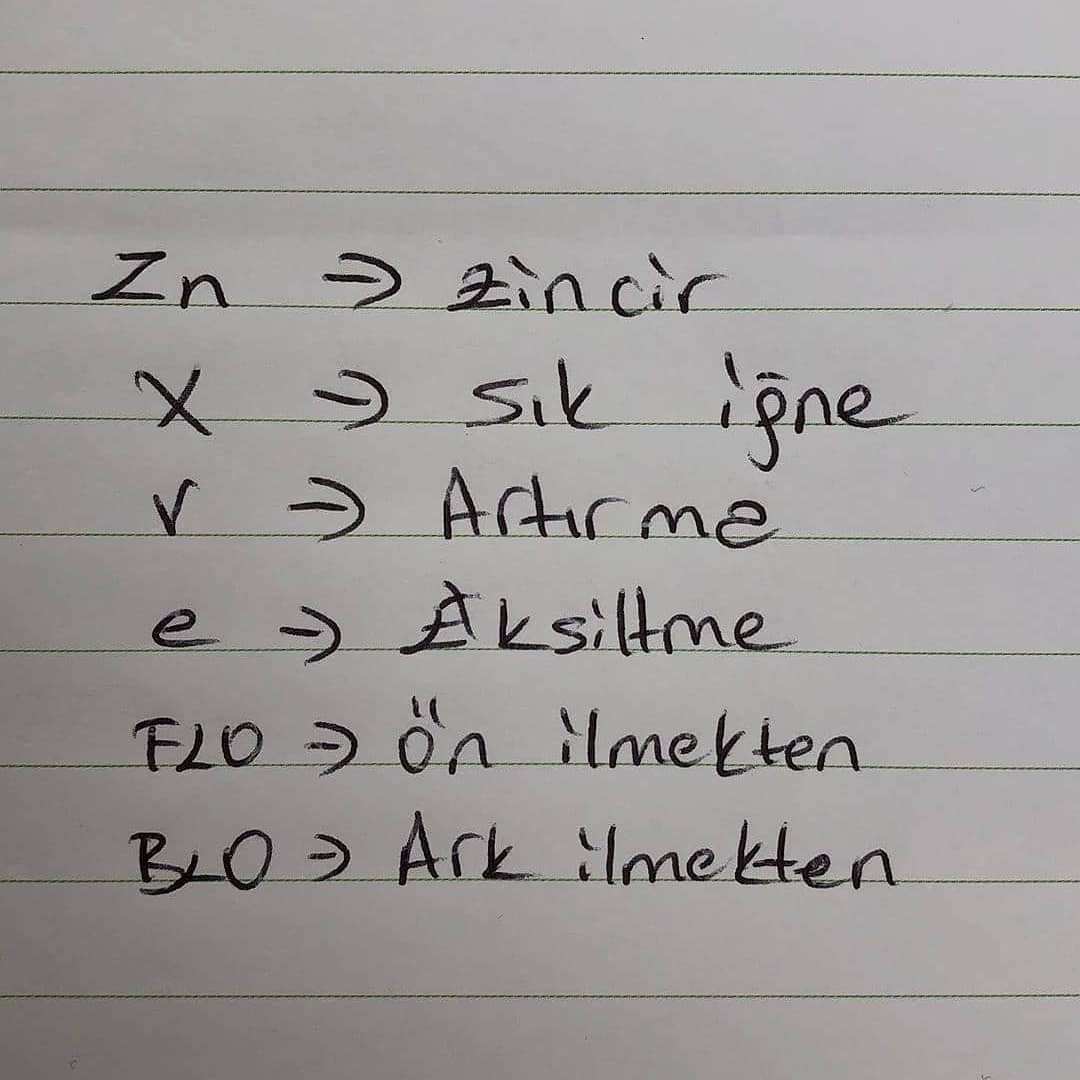 Zn => zincir
X => sık iğne
v => Artırma
e => Aksiltme
FLO => ön ilmekten
BLO => Ark ilmekten